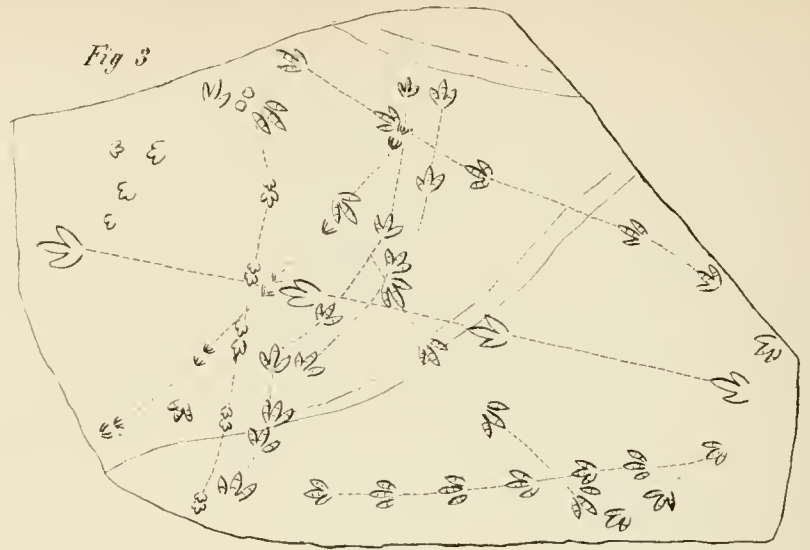 Fig 3